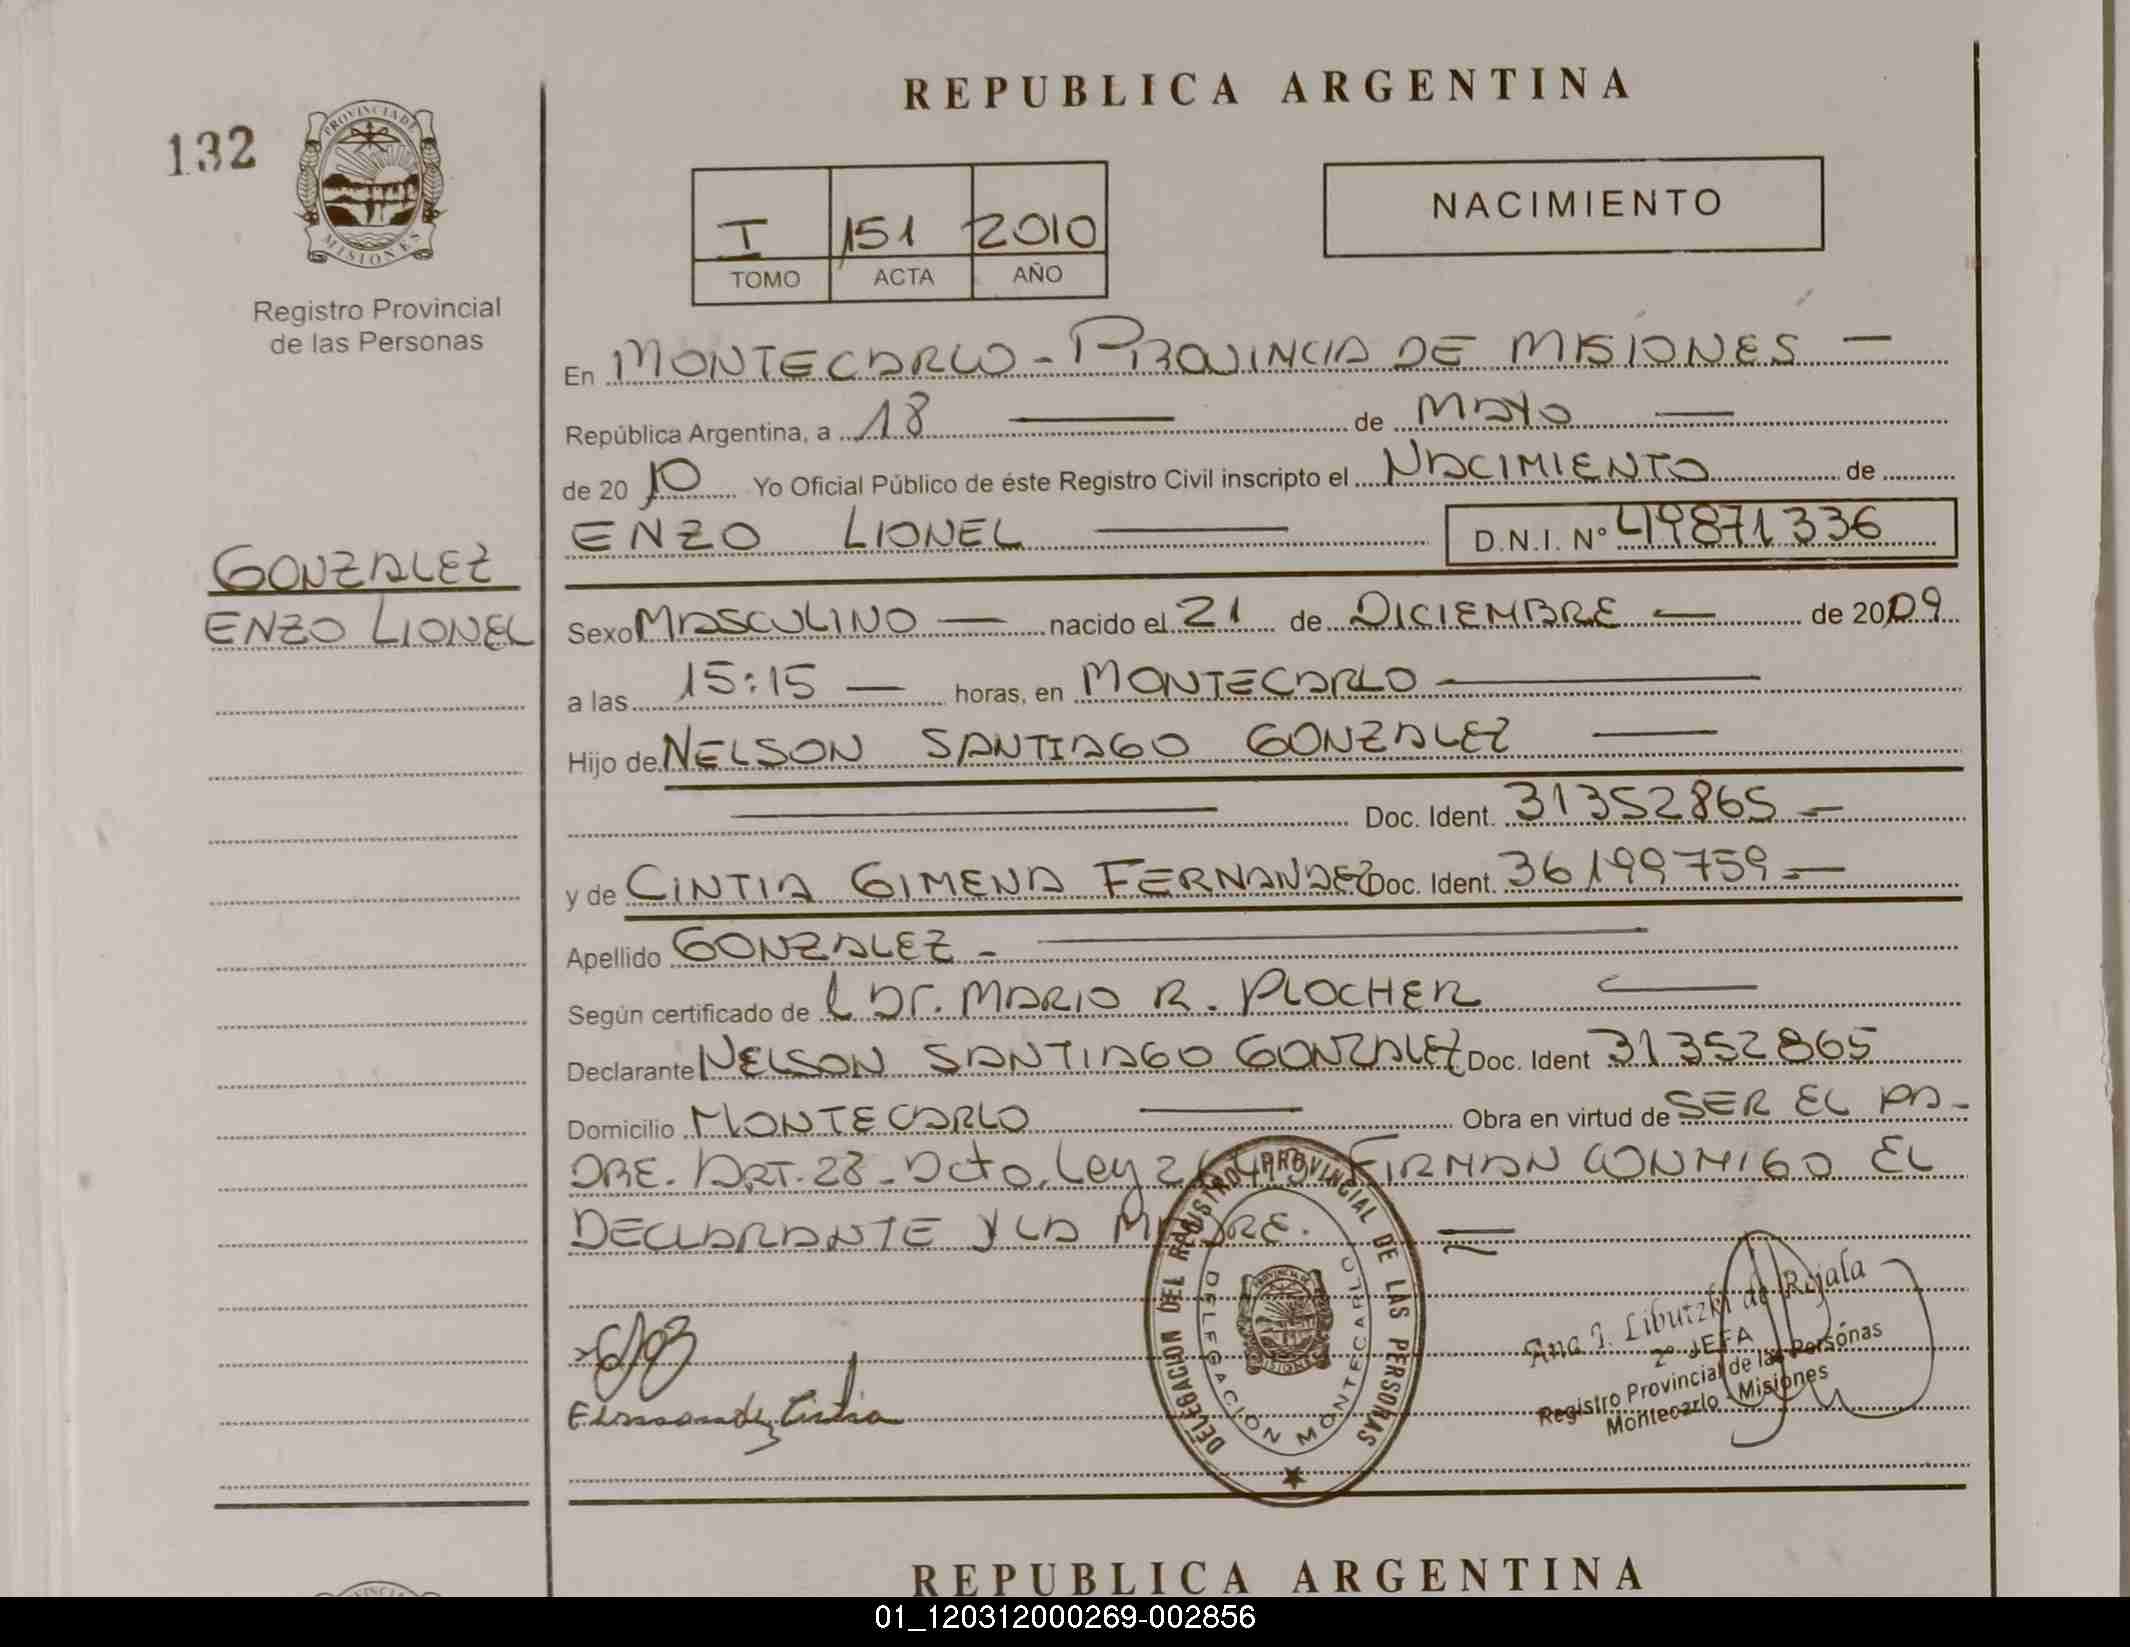 REPUBLICA ARGENTINA
132
PROVINCIA DE MISIONES
Registro Provincial
de las Personas
NACIMIENTO
I 151 2010
TOMO ACTA AÑO
En MONTECARLO - PROVINCIA DE MISIONES —
República Argentina, a 18 — de MAYO —
de 2010 Yo Oficial Público de éste Registro Civil inscripto el NACIMIENTO de
ENZO LIONEL — D.N.I. Nº 49871336
GONZALEZ
ENZO LIONEL
Sexo MASCULINO — nacido el 21 de DICIEMBRE — de 2009
a las 15:15 — horas, en MONTECARLO —
Hijo de NELSON SANTIAGO GONZALEZ —
— Doc. Ident. 31352865 —
y de CINTIA GIMENA FERNANDEZ Doc. Ident. 36199759 —
Apellido GONZALEZ - —
Según certificado de L Dr. MARIO R. PLOCHER —
Declarante NELSON SANTIAGO GONZALEZ Doc. Ident 31352865
Domicilio MONTECARLO — Obra en virtud de SER EL PA-
DRE. ART. 28 - Dcto. Ley FIRMAN CONMIGO EL
DECLARANTE Y LA MADRE. =
DELEGACION DEL REGISTRO PROVINCIAL DE LAS PERSONAS
DELEGACIÓN MONTECARLO
Fernandez Cintia
Ana J. Libutzki de Rojala
2º JEFA
Registro Provincial de las Persónas
Montecarlo - Misiones
REPUBLICA ARGENTINA
01_120312000269-002856